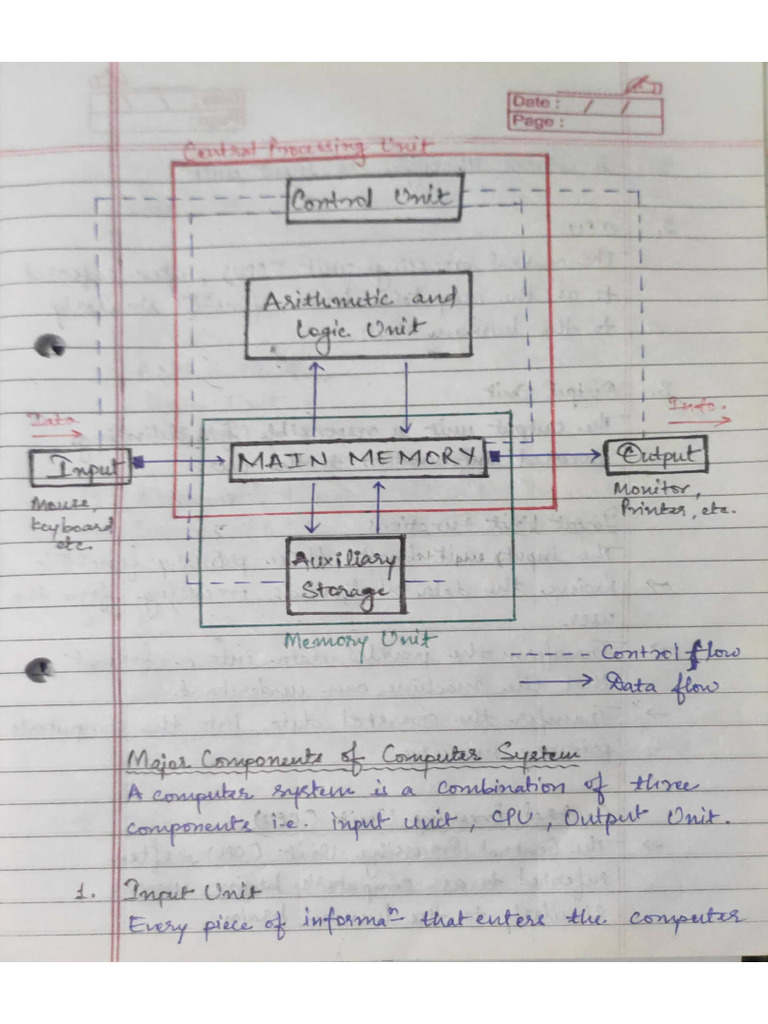 Date :   /   /
Page :
Central Processing Unit
Control Unit
Arithmetic and
Logic Unit
Data
Info.
Input
MAIN MEMORY
Output
Mouse,
Keyboard
etc.
Monitor,
Printer, etc.
Auxiliary
Storage
Memory Unit
Control flow
Data flow
Major Components of Computer System
A computer system is a combination of three
components i.e. input unit, CPU, Output Unit.
1. Input Unit
Every piece of informaⁿ that enters the computer